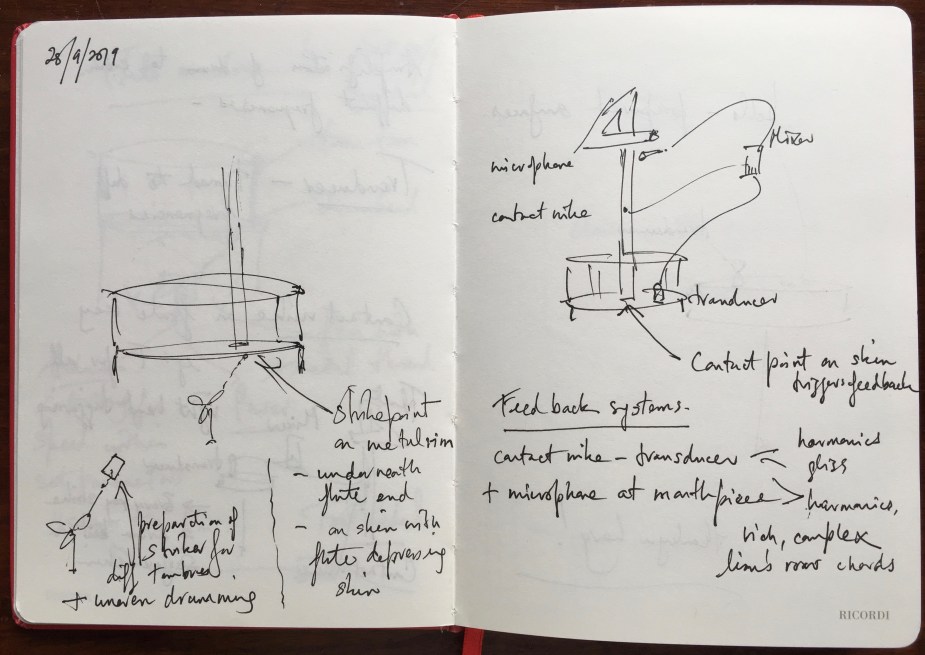 28/9/2019
Strikepoint
on metal rim
- underneath
flute end
- on skin with
flute depressing
skin
preparation of
striker for
diff timbres.
+ uneven drumming
microphone
Mixer
contact mike
tranducer
Contact point on skin
triggers feedback
Feedback systems.
contact mike - transducer
harmonics
gliss
+ microphone at mouthpiece
harmonics,
rich, complex
chords
RICORDI